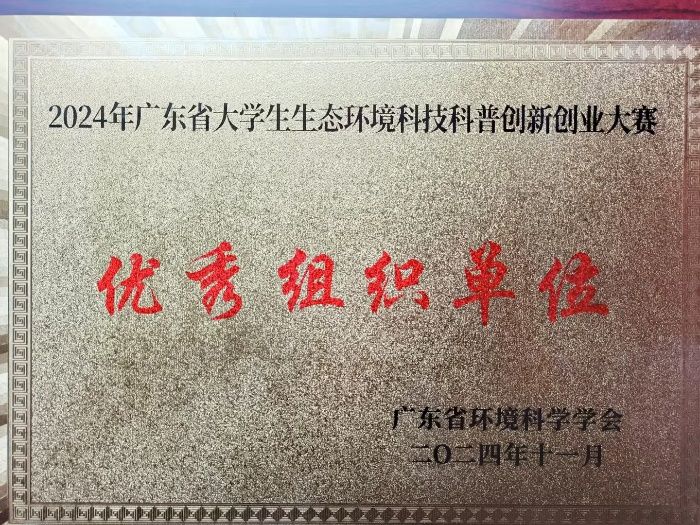 2024年广东省大学生生态环境科技科普创新创业大赛
优秀组织单位
广东省环境科学学会
二〇二四年十一月